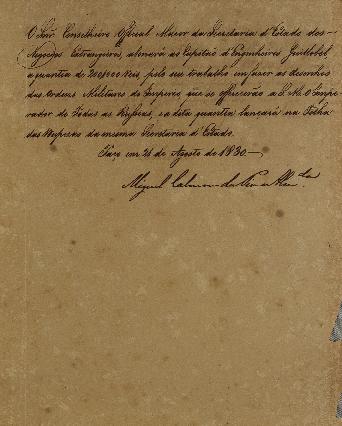 O Snr. Conselheiro Official Maior da Secretaria d'Estado dos
Negocios Estrangeiros, abonará ao Capitão d'Engenheiros Guillobel
a quantia de 200$000 Reis, pelo seu trabalho em fazer os desenhos
das Ordens Militares do Imperio, que se offerecerão a S. M. O Impe-
rador de Todas as Russias, e a dita quantia lançará na Folha
das despezas da mesma Secretaria d'Estado.
Paço em 21 de Agosto de 1830.—
Miguel Calmon du Pin e Almda.